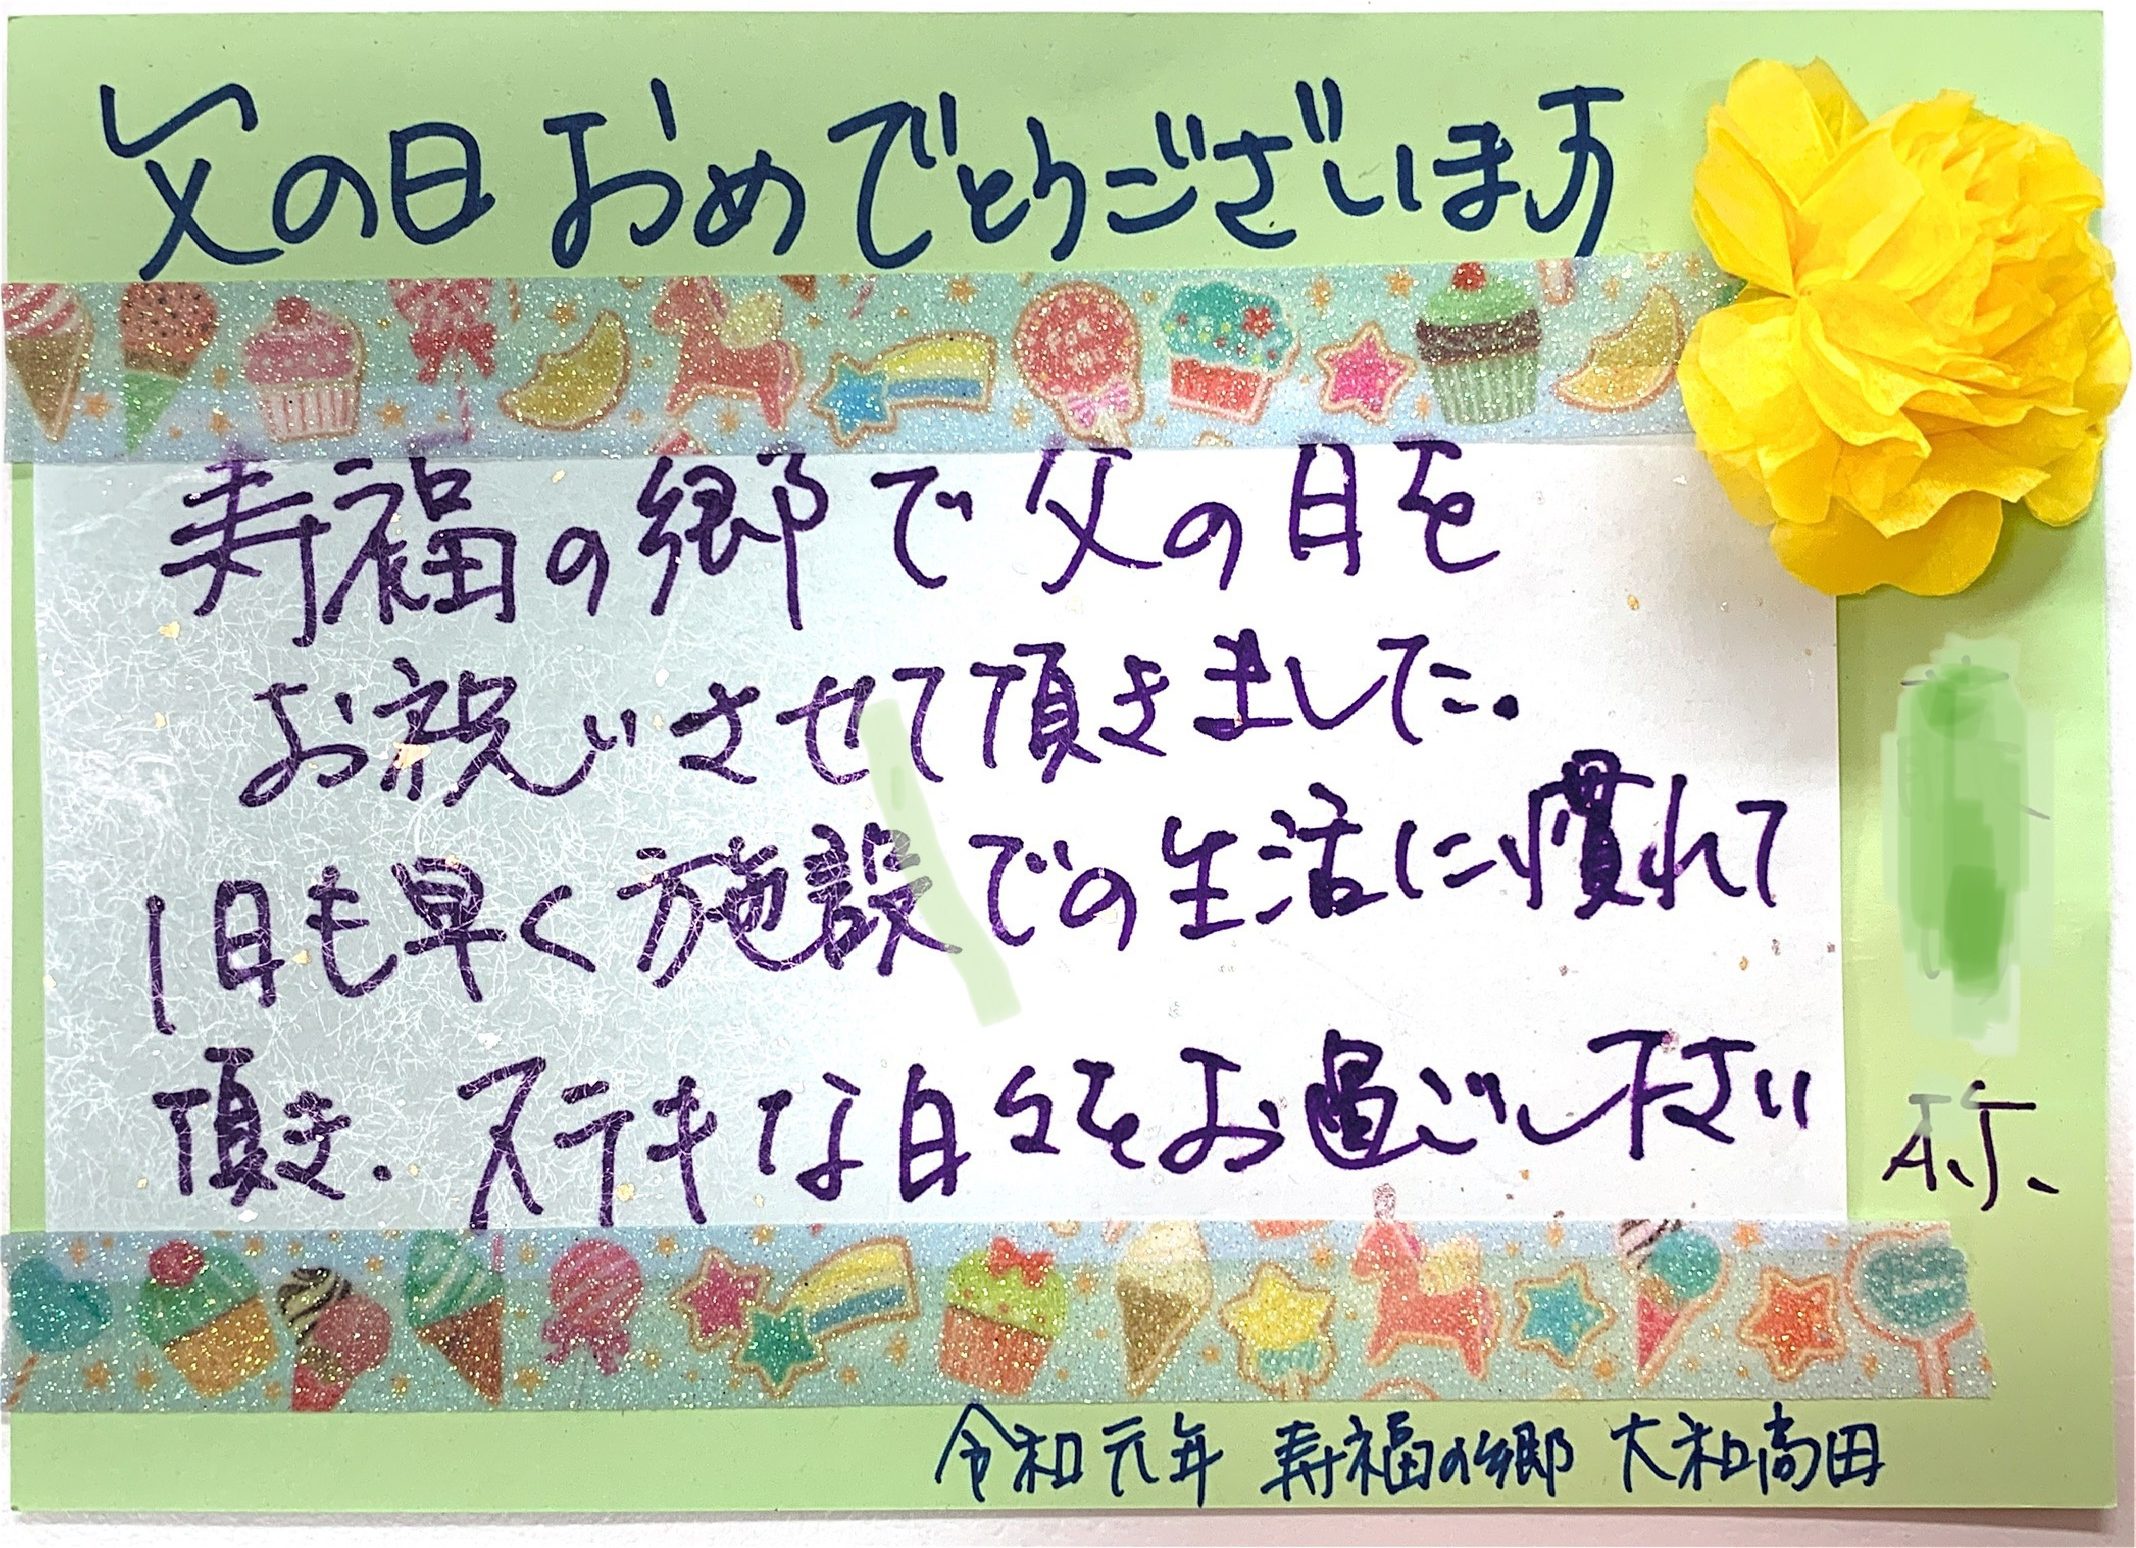 父の日 おめでとうございます
寿福の郷で父の日を
お祝いさせて頂きました。
1日も早く施設での生活に慣れて
頂き、ステキな日々をお過ごし下さい
令和元年 寿福の郷 大和高田